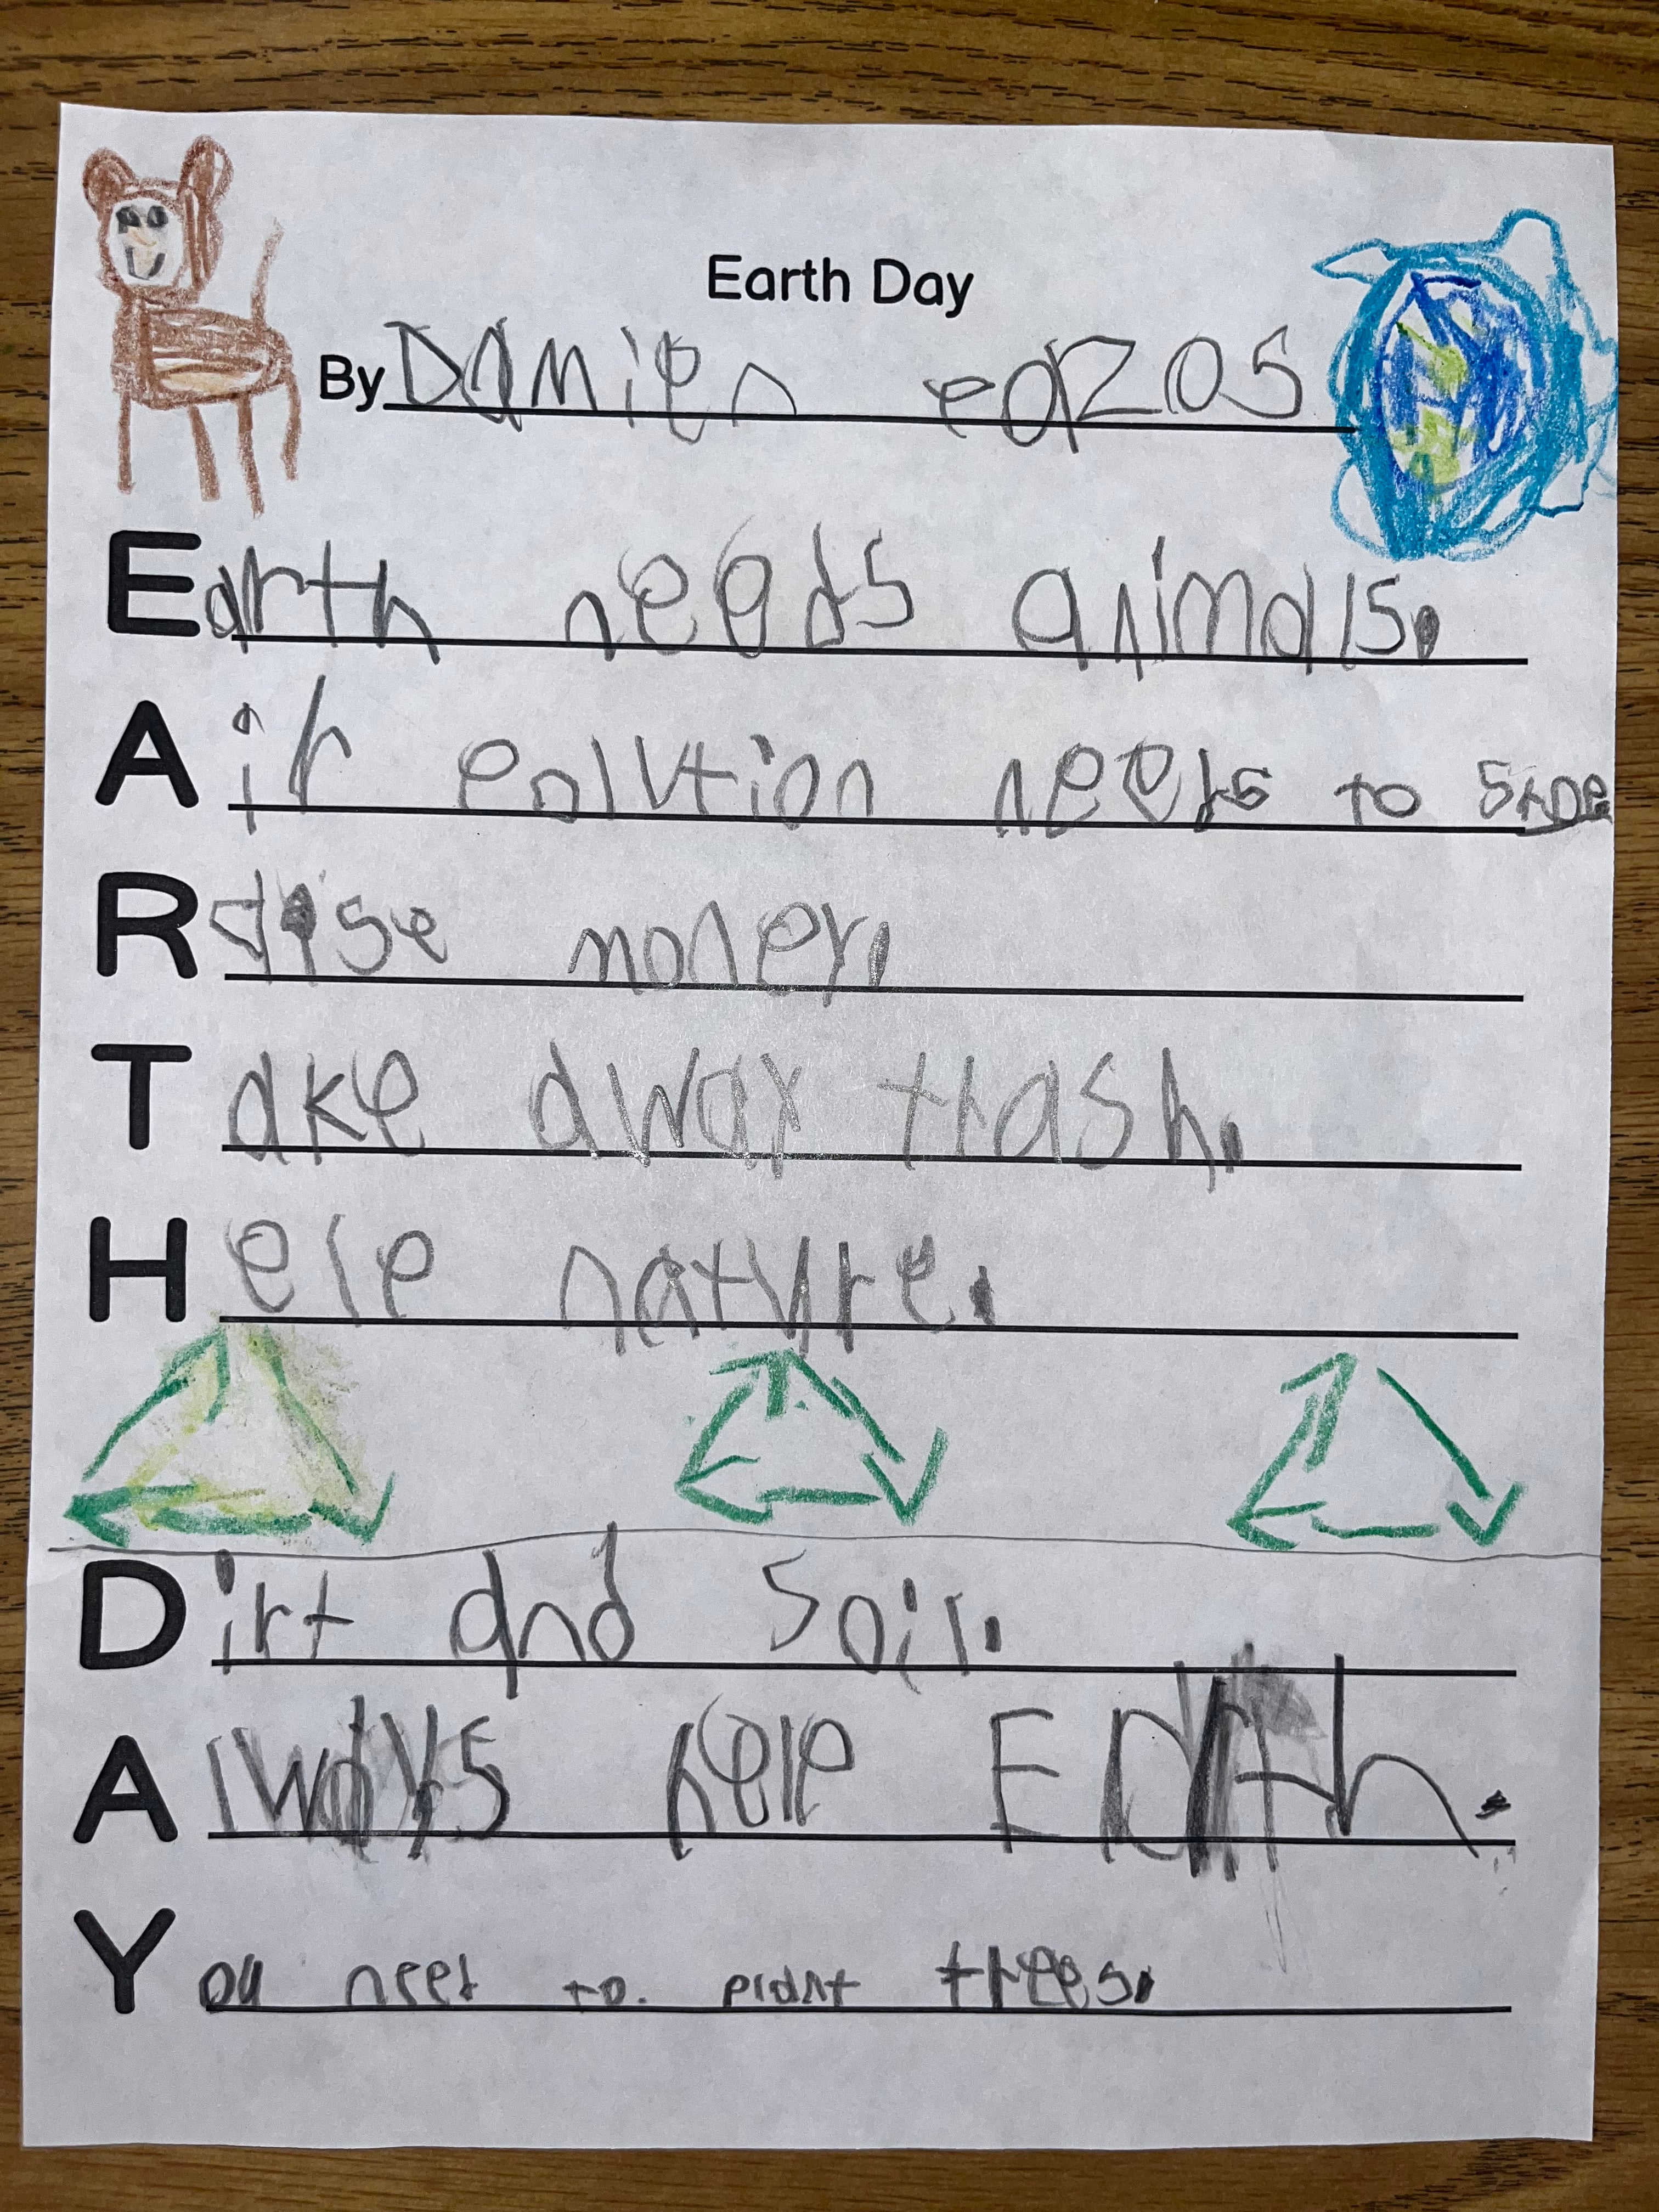 Earth Day
By Damien eazos
Earth needs animals.
Air polution needs to stop
Raise money.
Take away trash.
Help nature.
Dirt and soil.
Always help Earth.
You need to plant trees.